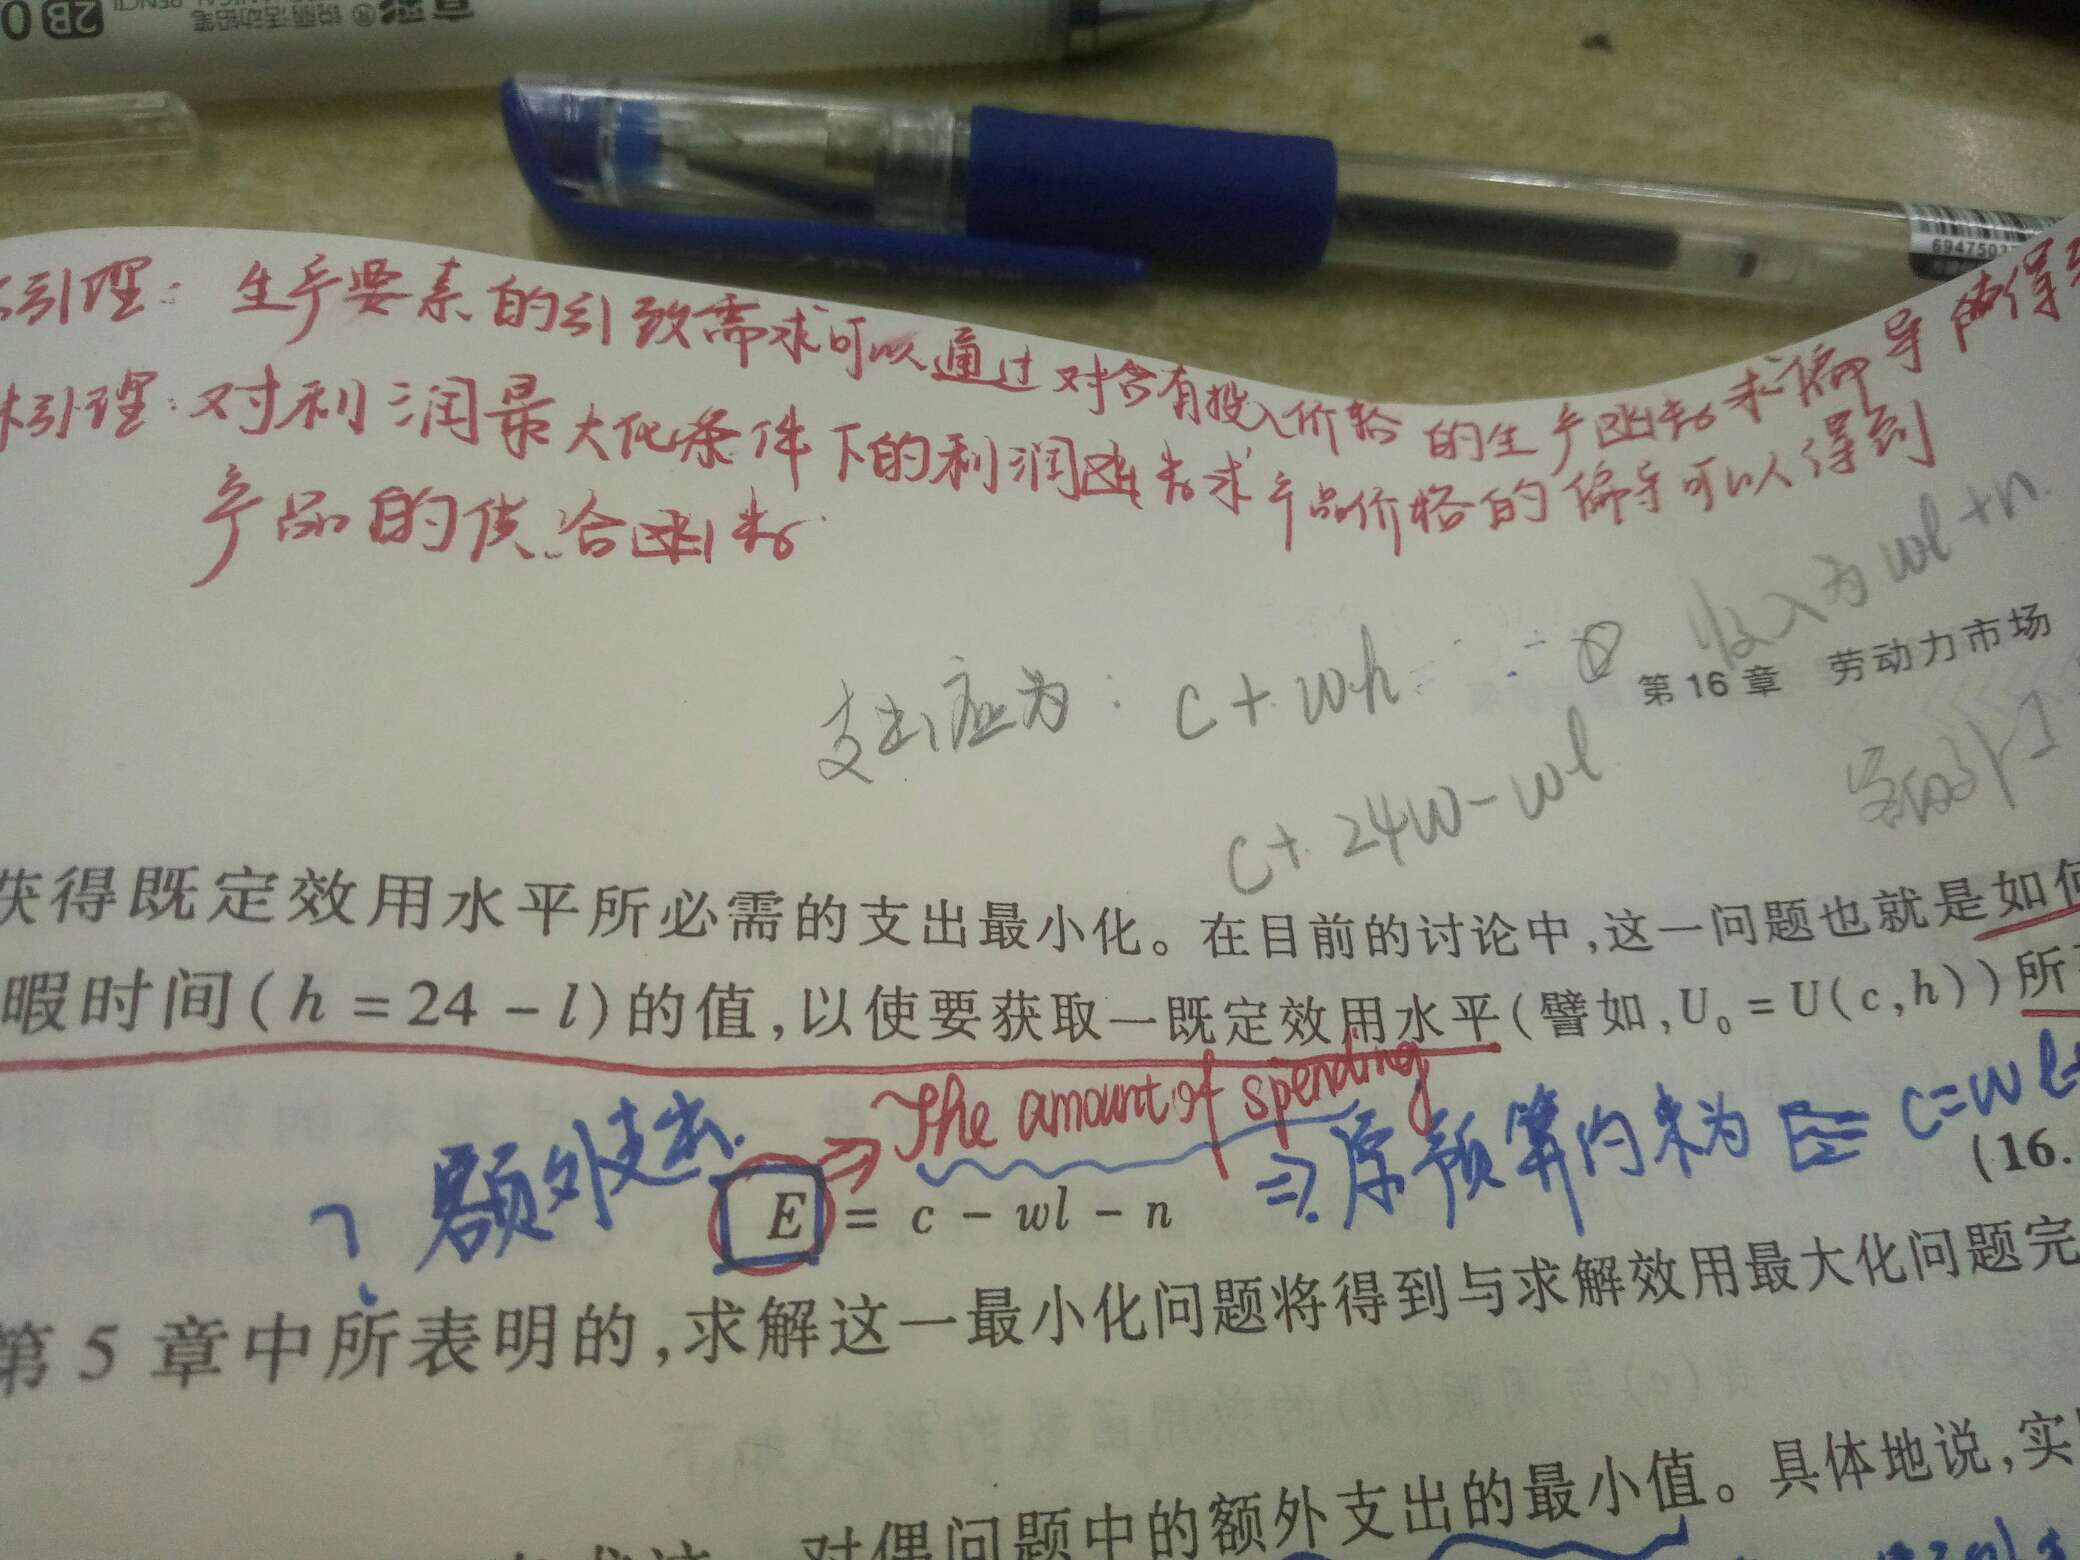 2B
694750
引理: 生产要素的引致需求可以通过对含有投入价格的生产函数求偏导而得到
引理: 对利润最大化条件下的利润函数求产品价格的偏导可以得到
产品的供给函数
收入为wl+n
第16章 劳动力市场
支出应为: c+wh
c+24w-wl
获得既定效用水平所必需的支出最小化。在目前的讨论中,这一问题也就是如何
暇时间(h=24-l)的值,以使要获取一既定效用水平(譬如,U₀=U(c,h))所
The amount of spending
额外支出
⇒原预算约束为 c=wl
(16.
E = c - wl - n
第5章中所表明的,求解这一最小化问题将得到与求解效用最大化问题完
对偶问题中的额外支出的最小值。具体地说,实